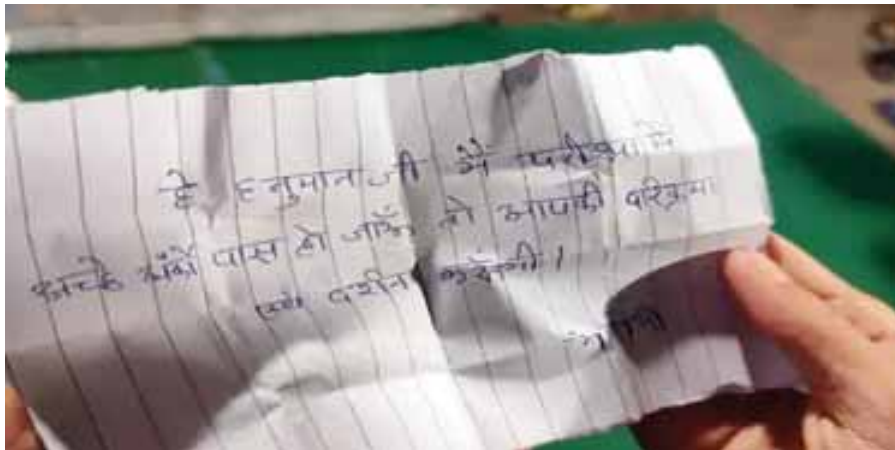 हे हनुमानजी मैं परीक्षा मे
अच्छे अंकों पास हो जाऊँ तो आपकी परिक्रमा
एवं दर्शन करूंगी।